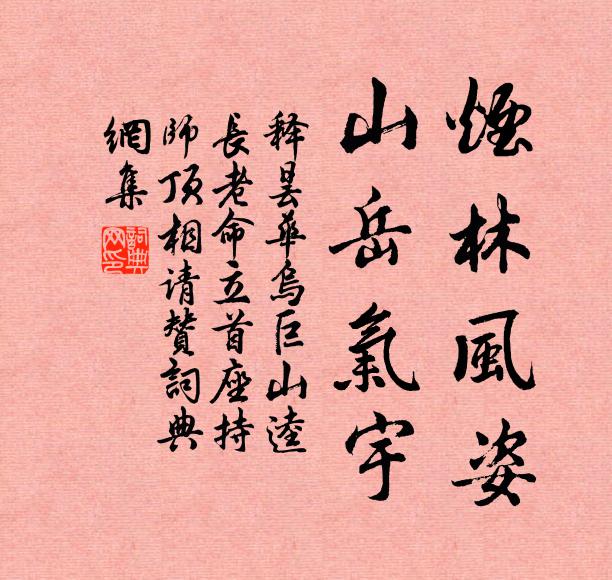 煙林風姿
山岳氣宇
释曇華烏巨山逵
長老命立首座持
師頂相请賛詞典
網集
詞典網印